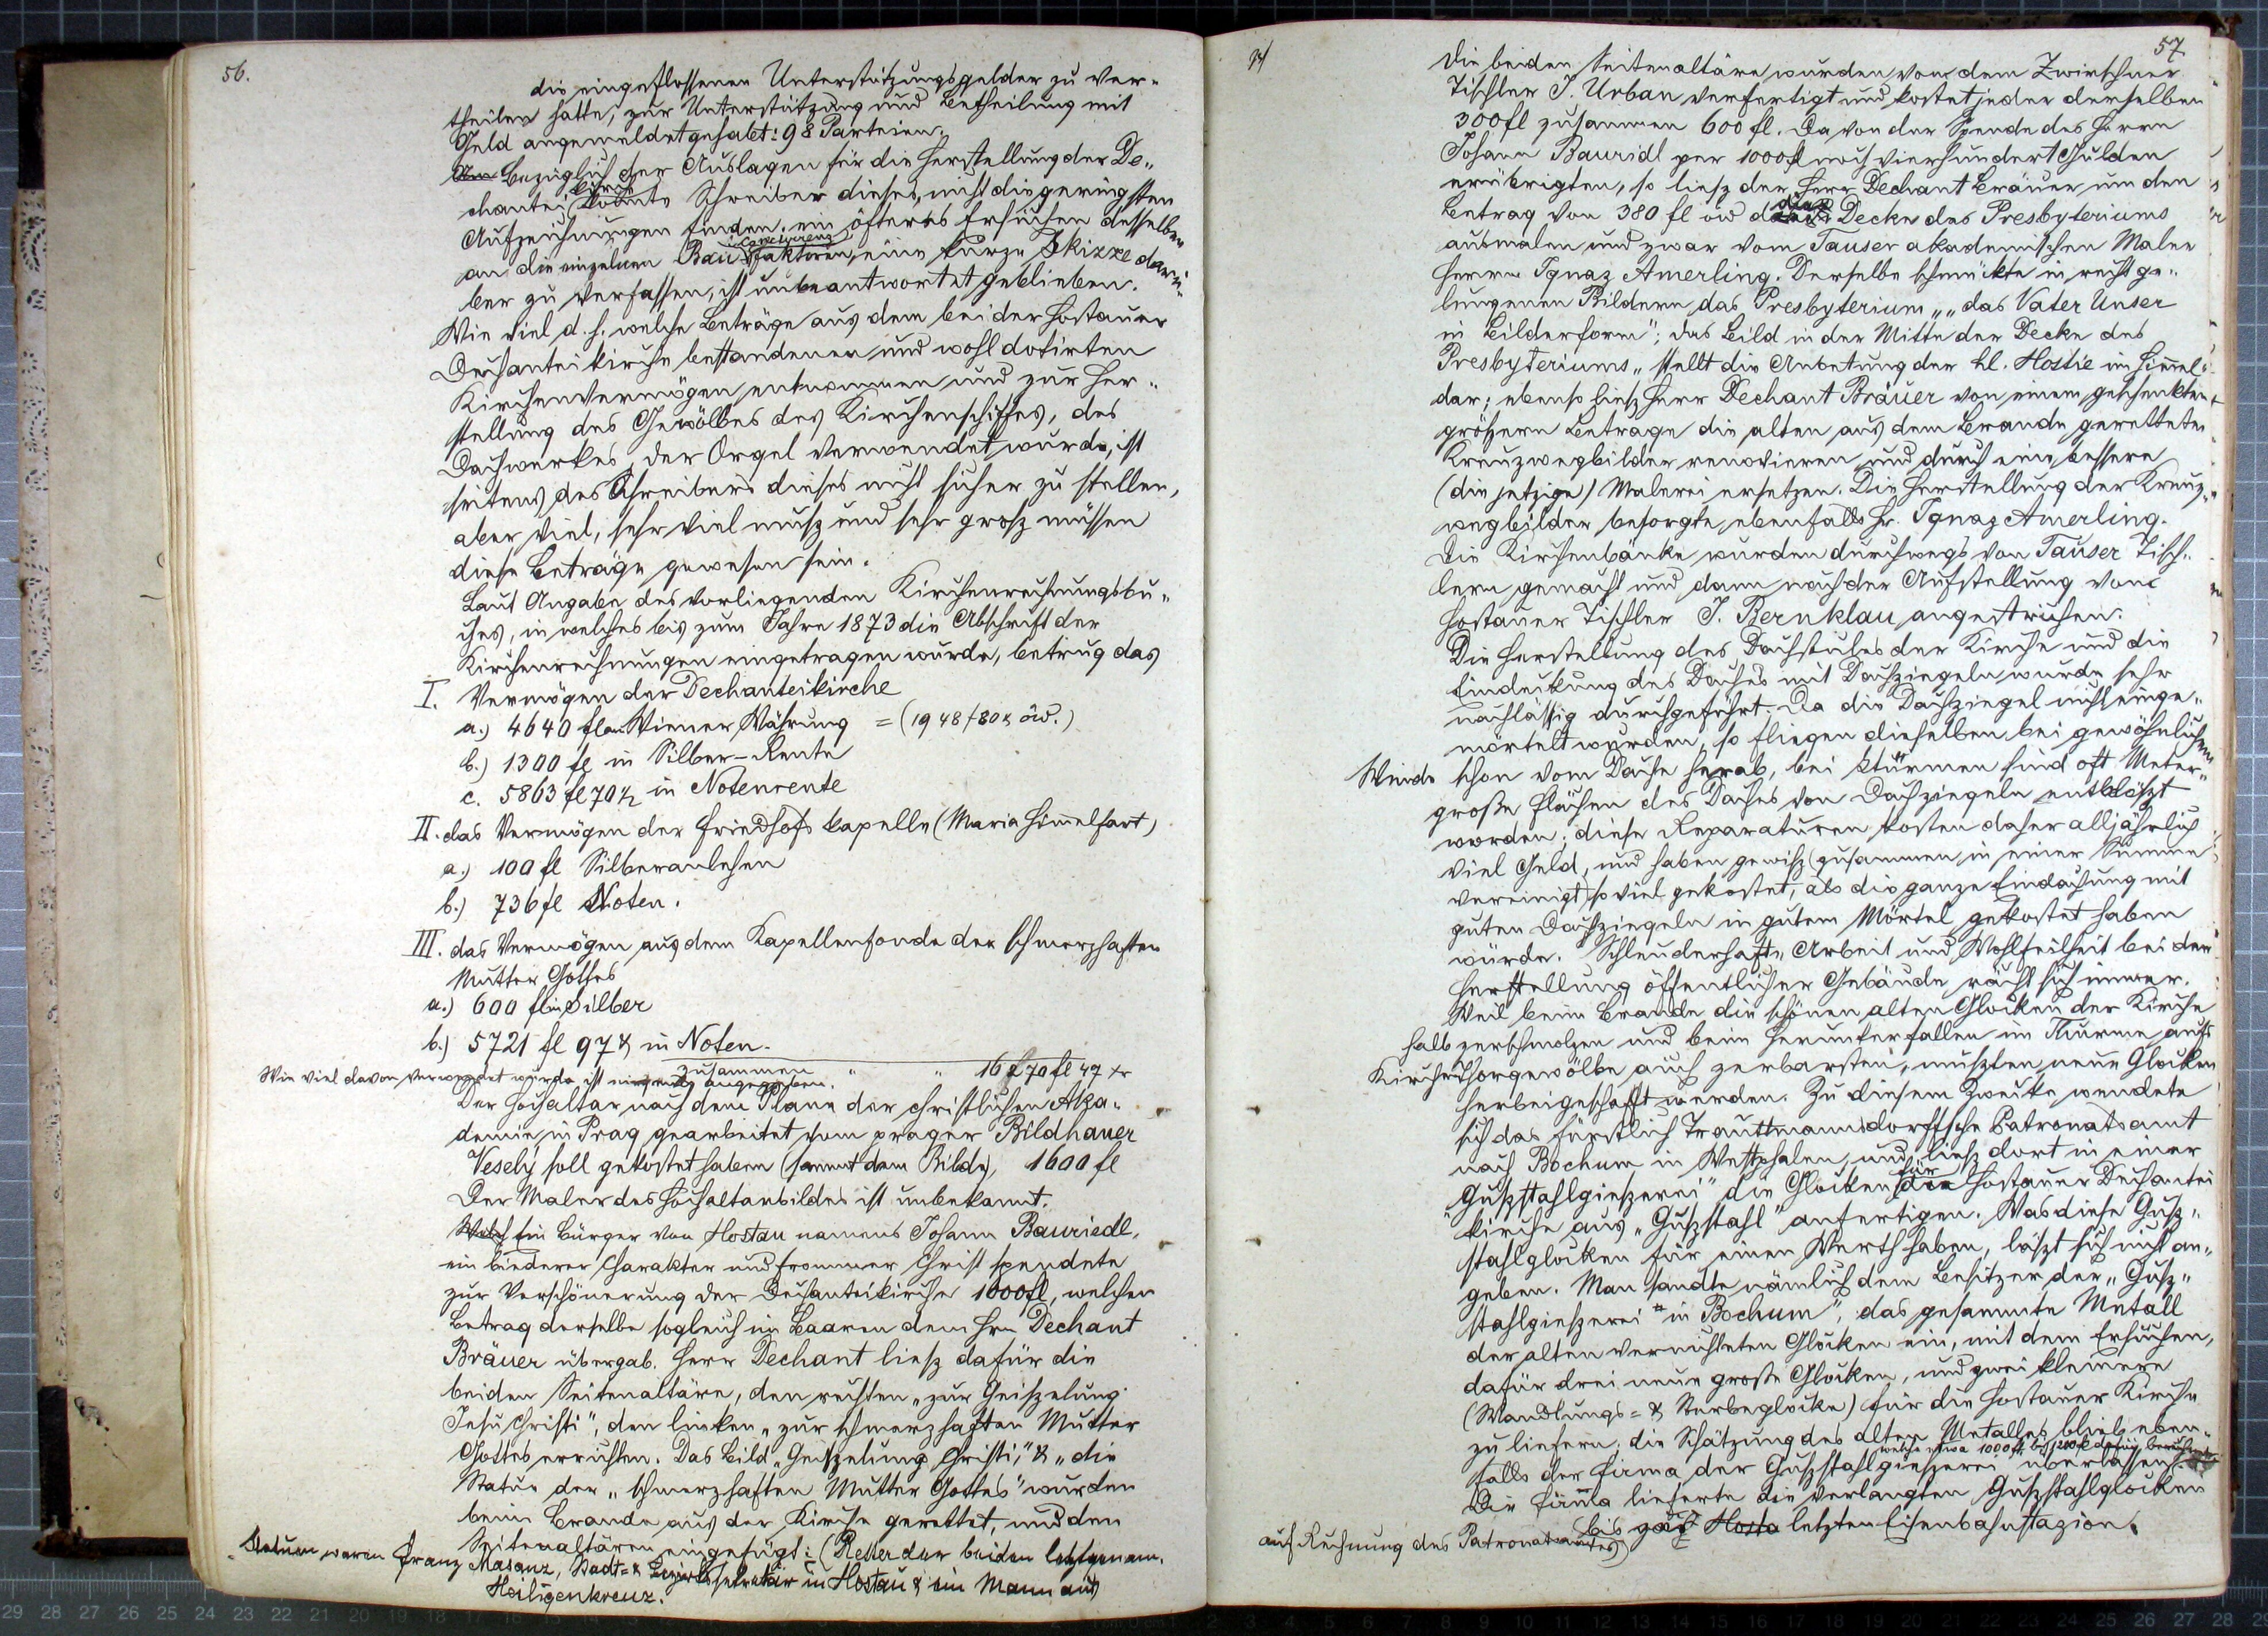 56.
die eingeflossenen Unterstützungsgelder zu ver-
theilen hatte, zur Unterstützung und Betheilung mit
Geld angemeldet gehabt: 98 Parteien.
Bezüglich der Auslagen für die Herstellung der De-
chantei kirche konnte Schreiber dieses, nicht die geringsten
Aufzeichnungen finden, ein öfteres Ersuchen desselben
an die einzelnen Bau Concurrenz faktoren, eine kurze Skizze darü-
ber zu verfassen, ist unbeantwortet geblieben.
Wie viel d. h. welche Beträge aus dem bei der Hostauer
Dechanteikirche bestandenen und wohl dotirten
Kirchenvermögen entnommen und zur Her-
stellung des Gewölbes des Kirchenschiffes, des
Dachwerkes, der Orgel verwendet wurde, ist
seitens des Schreibers dieses nicht sicher zu stellen,
aber viel, sehr viel musz und sehr grosz müssen
diese Beträge gewesen sein.
Laut Angabe des vorliegenden Kirchenrechnungsbu-
ches, in welches bis zum Jahre 1873 die Abschrift der
Kirchenrechnungen eingetragen wurde, betrug das
I. Vermögen der Dechanteikirche
a.) 4640 fl Wiener Währung = (1948 f 80 x öw.)
b.) 1300 fl in Silber-Rente
c. 5863 fl 70 ½ in Notenrente
II. das Vermögen der Friedhofs kapelle (Maria Himmelfart)
a.) 100 fl Silberanlehen
b.) 736 fl Noten.
III. das Vermögen aus dem Kapellenfonde der schmerzhaften
Mutter Gottes
a.) 600 fl in Silber
b.) 5721 fl 97 x in Noten.
zusammen " " 16 f 70 fl 47 xr
Wie viel davon verwendet wurde ist nirgends angegeben.
Der Hochaltar nach dem Plane der christlichen Aka-
demie in Prag gearbeitet vom prager Bildhauer
Veselý soll gekostet haben (sammt dem Bilde), 1600 fl
Der Maler des Hochaltarbildes ist unbekannt.
Welch Ein Bürger von Hostau namens Johann Bauriedl,
ein biederer Charakter und frommer Christ spendete
zur Verschönerung der Dechanteikirche 1000 fl, welchen
Betrag derselbe sogleich im Baaren dem Hrn Dechant
Bräuer übergab. Herr Dechant liesz dafür die
beiden Seitenaltäre, den rechten „zur Geiszelung
Jesu Christi", den linken „zur schmerzhaften Mutter
Gottes errichten. Das Bild „Geiszelung Christi," & „die
Statue der „schmerzhaften Mutter Gottes" wurden
beim Brande aus der Kirche gerettet, und den
Seitenaltären eingefügt: (Retter der beiden letztgenan.
Statuen waren Franz Masanz, Stadt- & Bezirkssekretär in Hostau & ein Mann aus
Heiligenkreuz.
57
Die beiden Seitenaltäre wurden von dem Zwirschner
Tischler J. Urban verfertigt und kostet jeder derselben
300 fl zusammen 600 fl. Da von der Spende des Herrn
Johann Bauridl per 1000 fl noch vierhundert Gulden
erübrigten, so liesz der Herr Dechant Bräuer um den
Betrag von 380 fl öw die Decke des Presbyteriums
ausmalen und zwar vom Tauser akademischen Maler
Herrn Ignaz Amerling. Derselbe schmückte in recht ge-
lungenen Bildern das Presbyterium „„das Vater Unser
in Bilderform"; das Bild in der Mitte der Decke des
Presbyteriums „stellt die Anbetung der hl. Hostie im Himmel"
dar; ebenso liesz Herr Dechant Bräuer von einem geschenkten
gröszern Betrage die alten aus dem Brande geretteten
Kreuzwegbilder renovieren und durch eine bessere
(die jetzige) Malerei ersetzen. Die Herstellung der Kreuz-
wegbilder besorgte ebenfalls Hr. Ignaz Amerling.
Die Kirchenbänke wurden durchwegs von Tauser Tisch-
lern gemacht und dann nach der Aufstellung vom
Hostauer Tischler J. Bernklau angestrichen.
Die Herstellung des Dachstules der Kirche und die
Eindeckung des Daches mit Dachziegeln wurde sehr
nachlässig durchgeführt. Da die Dachziegel nicht einge-
mörtelt wurden, so fliegen dieselben bei gewöhnlichem
Winde schon vom Dache herab, bei Stürmen sind oft Meter-
große Flächen des Daches von Dachziegeln entblöszt
worden; diese Reparaturen kosten daher alljährlich
viel Geld, und haben gewisz (zusammen in einer Summe
vereinigt) so viel gekostet, als die ganze Eindachung mit
guten Dachziegeln in gutem Mörtel gekostet haben
würde. Schleuderhafte Arbeit und Wohlfeilheit bei der
Herstellung öffentlicher Gebäude rächt sich immer.
Weil beim Brande die schönen alten Glocken der Kirche
halb zerschmolzen und beim Herunterfallen im Thurme aufs
Kirchenthorgewölbe auch zerbarsten, muszten neue Glocken
herbeigeschafft werden. Zu diesem Zwecke wendete
sich das fürstlich Trauttmannsdorffsche Patronatsamt
nach Bochum in Westphalen, und liesz dort in einer
„Guszstahlgieszerei" die Glocken für die Hostauer Dechantei
kirche aus „Guszstahl" anfertigen. Was diese Gusz-
stahlglocken für einen Werth haben, läszt sich nicht an-
geben. Man sandte nämlich dem Besitzer der „Gusz-
stahlgieszerei" in Bochum", das gesammte Metall
der alten vernichteten Glocken ein, mit dem Ersuchen,
dafür drei neue große Glocken, und zwei kleinere
(Wandlungs- & Sterbeglocke) für die Hostauer Kirche
zu liefern; die Schätzung des alten Metalles blieb eben-
falls der Firma der Guszstahlgieszerei überlassen, welche etwa 1000 fl bis 1200 fl dafür berechnete
Die Firma lieferte die verlangten Guszstahlglocken
auf Rechnung des Patronatsamtes) bis zur Hosta letzten Eisenbahnstazion.